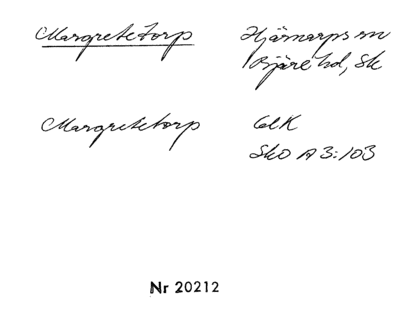 Margretetorp
Hjärnarps sn
Bjäre hd, Sk
Margretetorp
GEK
SkO A 3:103
Nr 20212